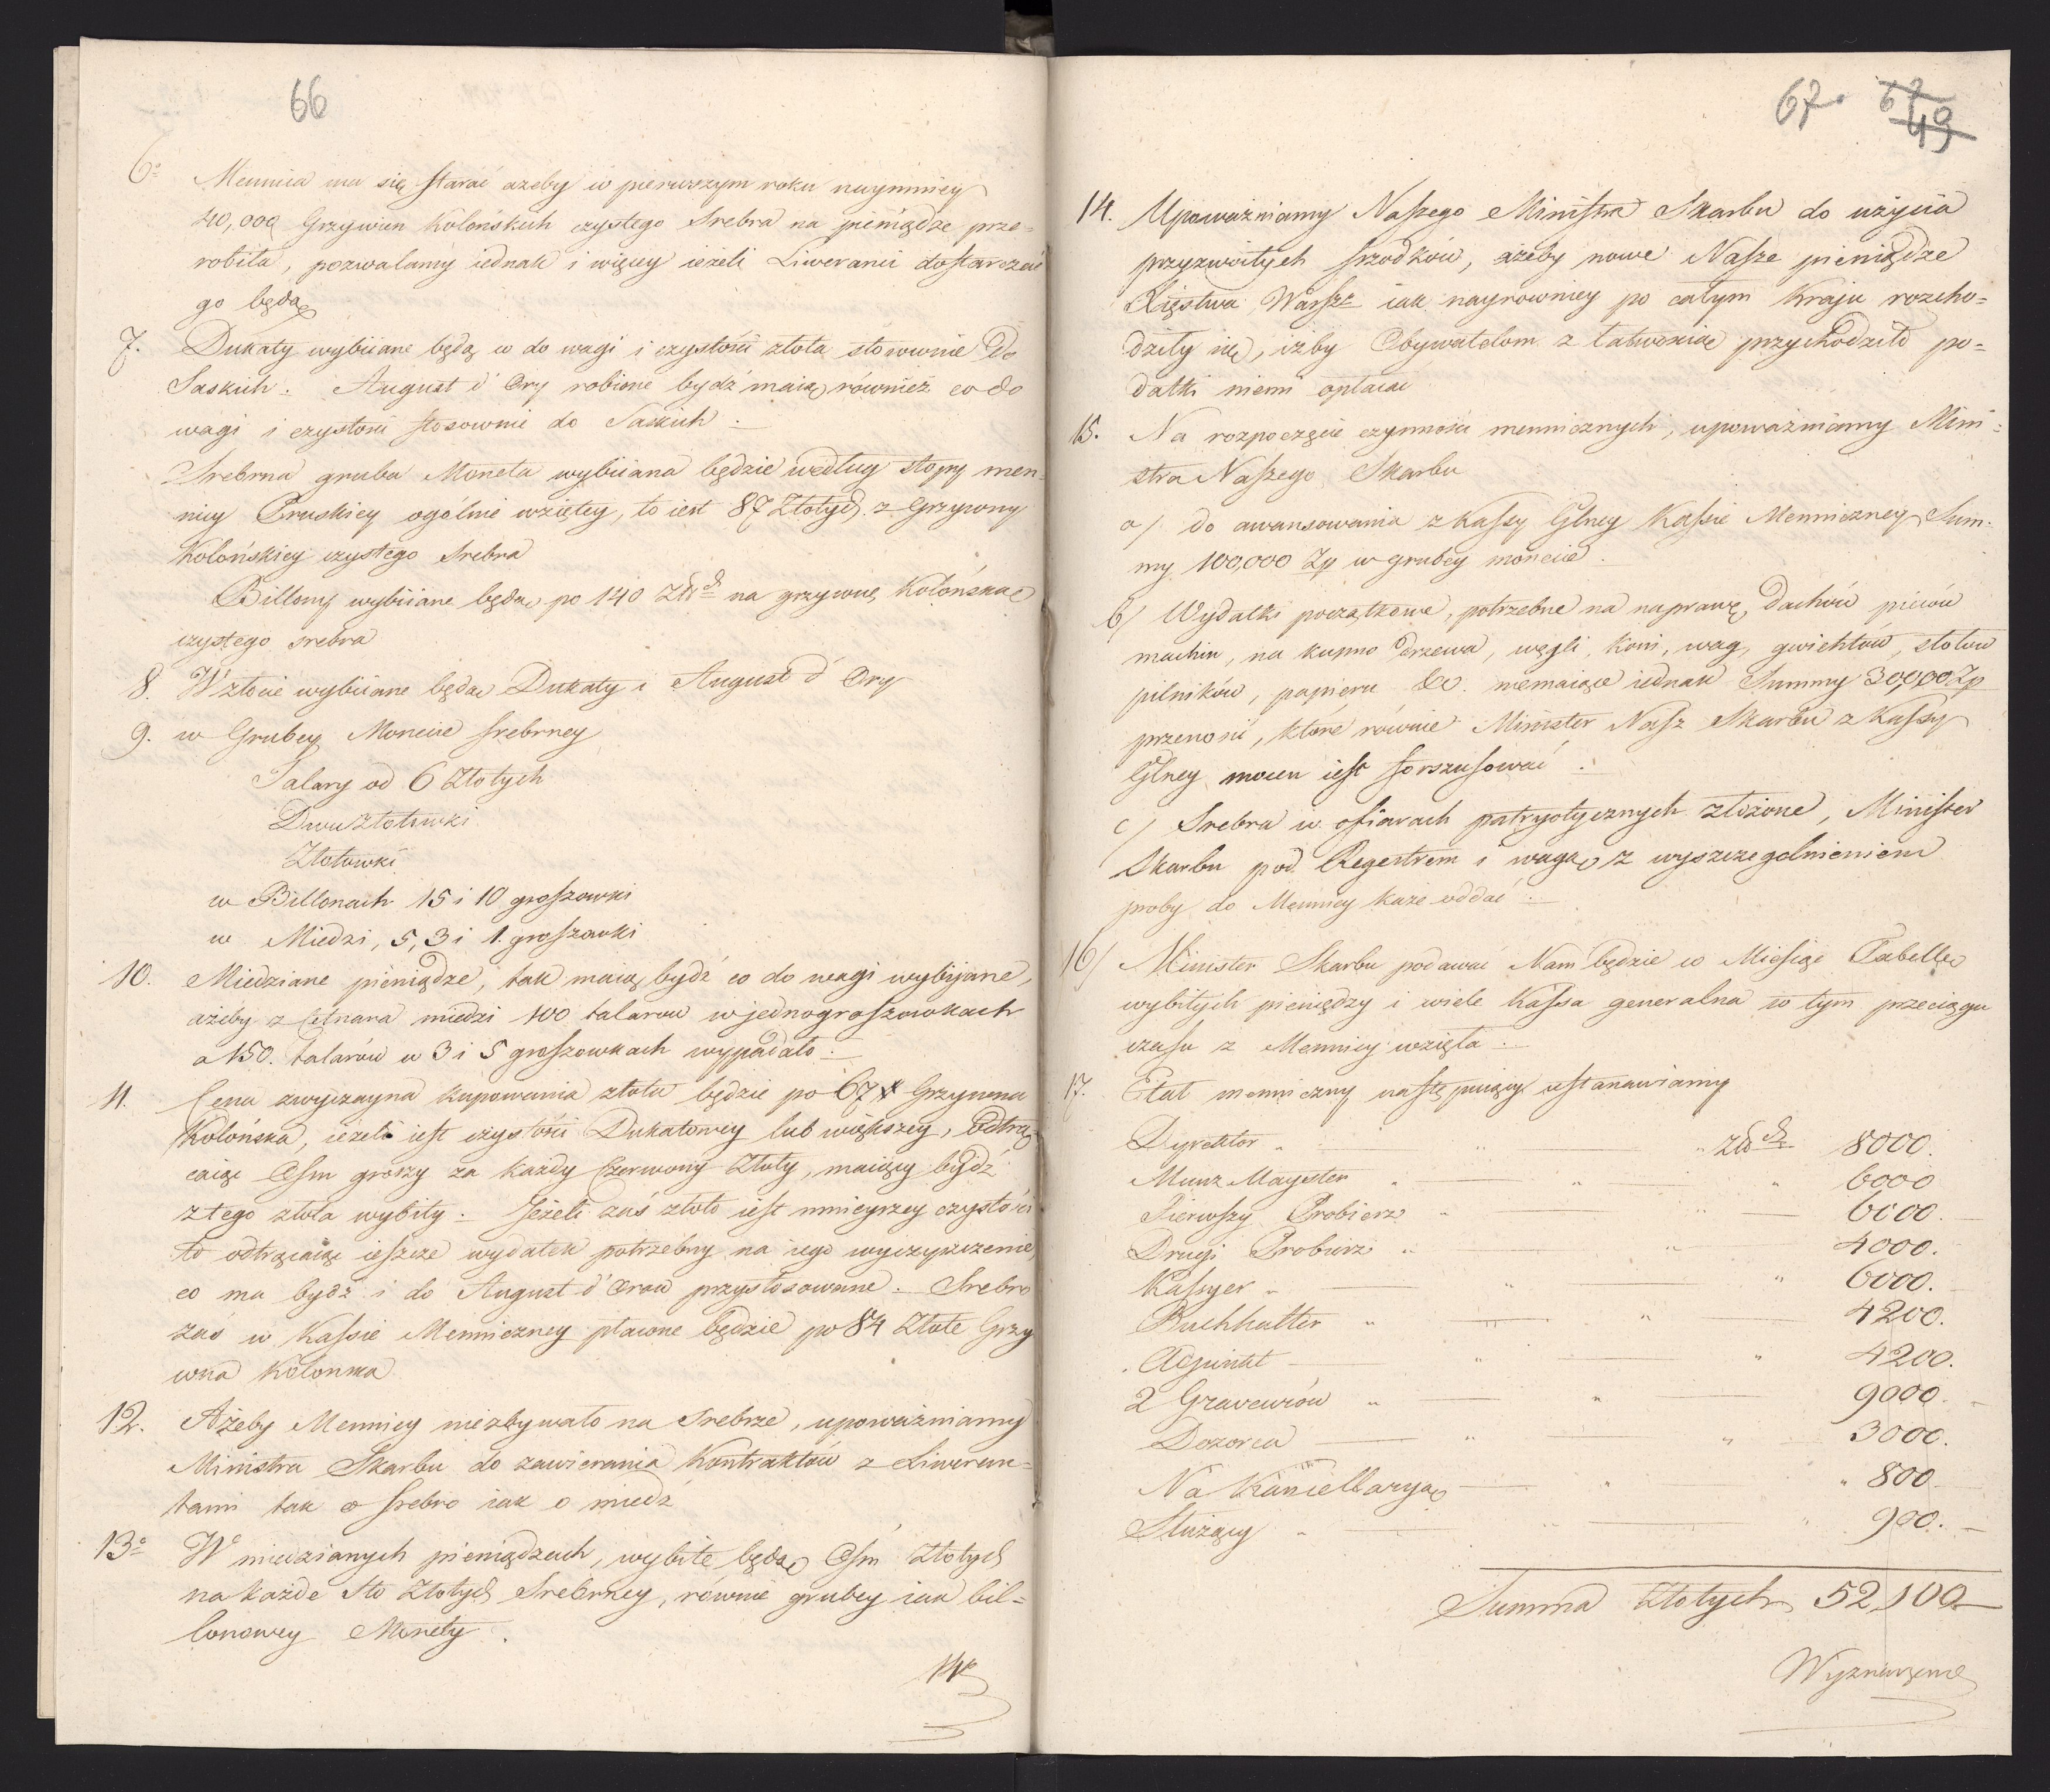 66
6º Mennica ma się starać ażeby w pierwszym roku naymniey
40,000 Grzywien Kolońskich czystego Srebra na pieniądze prze=
robiła, pozwalamy iednak i więcey ieżeli Liweranci dostarczać
go będą
7. Dukaty wybiiane będą co do wagi i czystości złota stosownie do
Saskich. August d'Ory robione bydź maią również co do
wagi i czystości stosownie do Saskich.
Srebrna gruba Moneta wybiiana będzie według stopy men=
nicy Pruskiey ogólnie wziętey, to iest 87 Złotych z Grzywny
Kolońskiey czystego Srebra
Billony wybiiane będą po 140 Złłch na grzywnę Kolońską
czystego srebra
8. W złocie wybiiane będą Dukaty i August d'Ory
9. w Grubey Monecie srebrney
Talary od 6 Złotych
Dwuzłotówki
Złotowki
w Billonach 15 i 10 groszowki
w Miedzi, 5, 3 i 1. groszowki
10. Miedziane pieniądze, tak maią bydź co do wagi wybijane,
ażeby z Cetnara miedzi 100 talarow w jednogroszowkach
a 150. talarów w 3 i 5 groszowkach wypadało.
11. Cena zwyczayna kupowania złota będzie po 67 # Grzywna
Kolońska, ieżeli iest czystości Dukatowey lub większey, odtrą=
caiąc Osm groszy za każdy Czerwony Złoty, maiący bydź
z tego złota wybity. Jeżeli zaś złoto iest mnieyszey czystości
to odtrącaiąc ieszcze wydatek potrzebny na iego wyczyszczenie,
co ma bydź i do August d'Orow przystosowane. Srebro
zaś w Kassie Menniczney płacone będzie po 84 Złote Grzy
wna Kolonska
12. Ażeby Mennicy niezbywało na Srebrze, upoważniamy
Ministra Skarbu do zawierania Kontraktów z Liweran=
tami tak o srebro iak o miedź
13º W miedzianych pieniądzach, wybite będą Osm Złotych
na każde Sto Złotych Srebrney, rownie grubey iak bil=
lonowey Monety.
14
67. 67
49
14. Upoważniamy Naszego Ministra Skarbu do użycia
przyzwoitych srzodków, ażeby nowe Nasze pieniądze
Xięstwa Warszo iak nayrowniey po całym Kraju rozcho=
dziły się, iżby Obywatelom z łatwością przychodziło po=
datki niemi opłacac
15. Na rozpoczęcie czynności mennicznych, upoważniamy Mini=
stra Naszego Skarbu
a/ do awansowania z Kassy Głney Kassie Menniczney Sum=
my 100,000 Zp w grubey monecie.
b/ Wydatki początkowe, potrzebne na naprawę, dachów pieców
machin, na kupno drzewa, węgli, koni, wag, gwichtów, stołow
pilników, papieru &c. niemaiące iednak Summy 30,000 Zp
przenosić, które równie Minister Nasz Skarbu z Kassy
Głney mocen iest forszusować.
c/ Srebra w ofiarach patryotycznych złożone, Minister
Skarbu pod Regestrem i wagą z wyszczególnieniem
proby do Mennicy każe oddać.
16/ Minister Skarbu podawać Nam będzie co Miesiąc Tabellę
wybitych pieniędzy i wiele Kassa generalna w tym przeciągu
czasu z Mennicy wzięła.
17. Etat menniczny następuiący ustanawiamy
Dyrektor " Złłch 8000.
Munz Mayster " 6000
Pierwszy Probierz " 6000.
Drugi Probierz " 4000.
Kassyer " 6000.
Buchhalter " 4200.
Adjunkt " 4200.
2 Graveurów " 9000.
Dozorca " 3000.
Na Kancellaryą " 800.
Służący " 900.
Summa Złotych 52,100
Wyznaczone